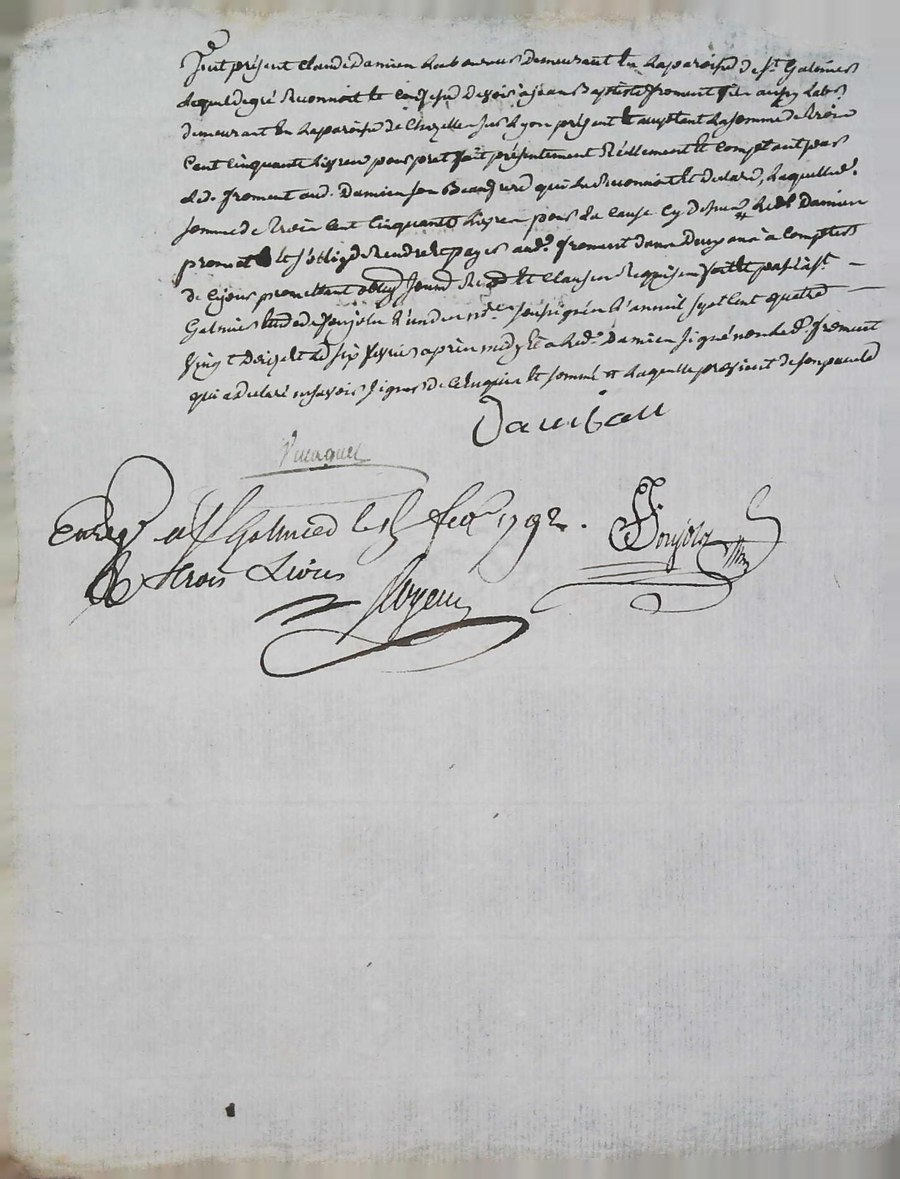 fut présent Claude Damien Laboureur demeurant En la paroisse de St Galmier
lequel de gré Reconnoit Et Confesse devoir a jean Baptiste froment fils aussy Labr
demeurant En la paroisse de Chazelle sur Lyon présent Et acceptant La somme de trois
Cent Cinquante Livres pour pret fait présentement Réellement Et Comptant par
led. froment aud. Damien son Beaufrere qui Le Reconnoit Et declare, Laquelle d.
somme de trois Cent Cinquante Livres pour La Cause Cy dessus Led. Damien
promet Et s'oblige de Rendre Et payer aud. froment dans deux ans à Compter
de Ce jour promettant oblig. soumd. Et Clauses Requises fait Et passé à St
Galmier Etude de Jonjolu L'un des nres soussignés L'année sept Cent quatre
vingt douze Et Le six fevrier aprés midy Et a Led. Damien signé non Led. froment
qui a declaré ne savoir signer de Ce Enquis Et sommé Laquelle provient de son pecule
Damien
Enregr. a St Galmier le fevr. 1792.
R trois Livres